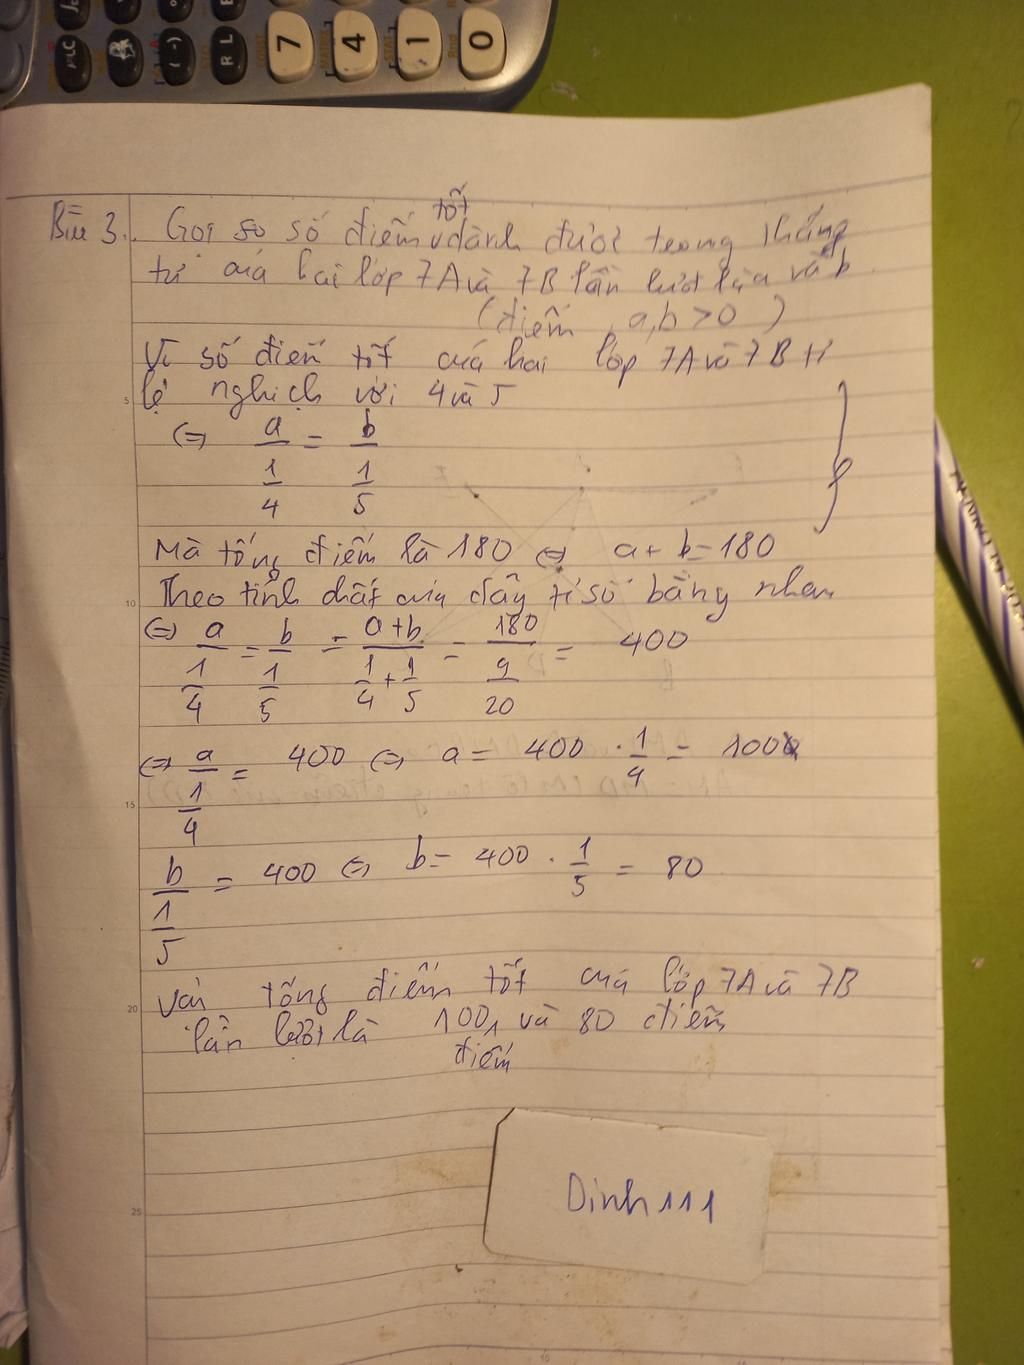 7 4 1 0
R L
(-)
Bài 3. Gọi so số điểm tốt dành được trong tháng
tư của hai lớp 7A và 7B lần lượt là a và b
(điểm, a,b > 0)
Vì số điểm tốt của hai lớp 7A và 7B tỉ
lệ nghịch với 4 và 5
⇔ a/(1/4) = b/(1/5)
Mà tổng điểm là 180 ⇔ a + b = 180
Theo tính chất của dãy tỉ số bằng nhau
⇔ a/(1/4) = b/(1/5) = (a+b)/(1/4 + 1/5) = 180/(9/20) = 400
⇔ a/(1/4) = 400 ⇔ a = 400 . 1/4 = 100
b/(1/5) = 400 ⇔ b = 400 . 1/5 = 80
Vậy tổng điểm tốt của lớp 7A và 7B
lần lượt là 100 điểm, và 80 điểm
Dinh111
5
10
15
20
25